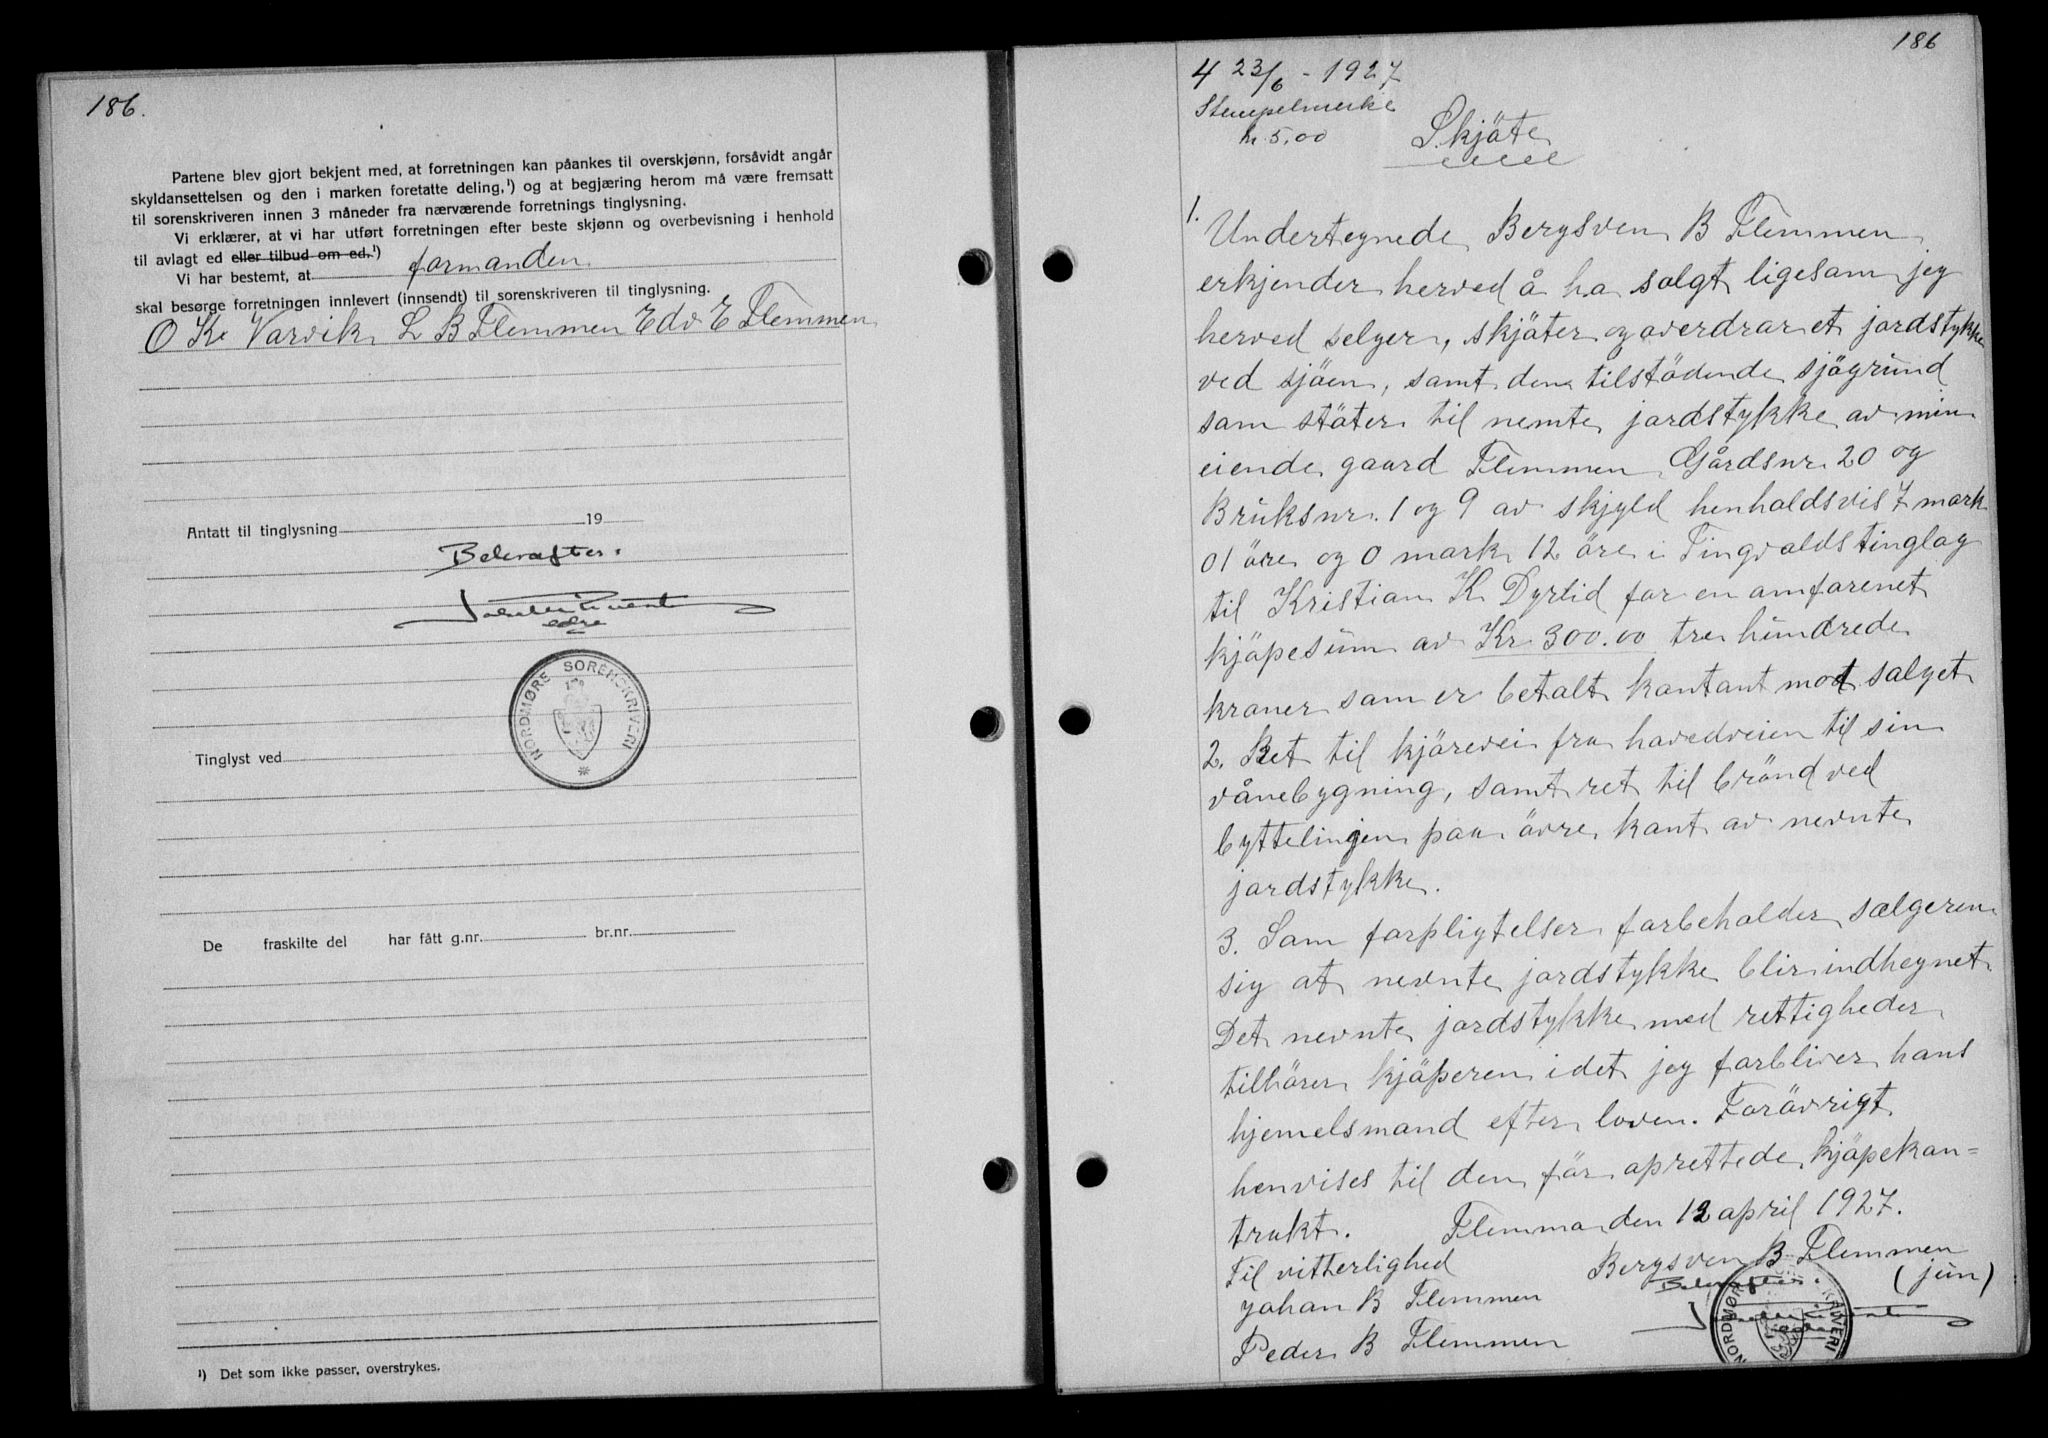 186.
Partene blev gjort bekjent med, at forretningen kan påankes til overskjønn, forsåvidt angår
skyldansettelsen og den i marken foretatte deling,¹) og at begjæring herom må være fremsatt
til sorenskriveren innen 3 måneder fra nærværende forretnings tinglysning.
Vi erklærer, at vi har utført forretningen efter beste skjønn og overbevisning i henhold
til avlagt ed eller tilbud om ed.¹)
Vi har bestemt, at formanden
skal besørge forretningen innlevert (innsendt) til sorenskriveren til tinglysning.
O K Varvik L B Flemmen Edv E Flemmen
Antatt til tinglysning 19
Bekræftes.
NORDMØRE SORENSKRIVERI
Tinglyst ved
De fraskilte del har fått g.nr. br.nr.
¹) Det som ikke passer, overstrykes.
186
4 23/6 - 1927
Stempelmerke
kr. 5,00
Skjäte
1.
Undertegnede Bergsven B Flemmen
erkjender herved å ha solgt ligesom jeg
herved selger, skjäter og overdrar et jordstykke
ved sjöen, samt den tilstödende sjögrund
som stöter til nemte jordstykke av min
eiende gaard Flemmen Gårdsnr. 20 og
Bruksnr. 1 og 9 av skjyld henholdsvis 7 mark
01 öre og 0 mark 12 öre i Tingvolds tinglag
til Kristian K Dyrlid for en omforenet
kjöpesum av Kr 300.00 tre hundrede
kroner som er betalt kontant mot salget
2. Ret til kjörevei fra hovedveien til sin
vånebygning, samt ret til brönd ved
byttelinjen paa övre kant av nevnte
jordstykke.
3. Som forpligtelser forbeholder sælgeren
sig at nevnte jordstykke blir indhegnet.
Det nevnte jordstykke med rettigheder
tilhörer kjöperen idet jeg forbliver hans
hjemelsmand efter loven. Forövrigt
henvises til den för oprettede kjöpekon=
trakt. Flemma den 12 april 1927.
Til vitterlighed Bergsven B Flemmen
(jun)
Johan B Flemmen Bekræftes.
Peder B Flemmen
NORDMØRE SORENSKRIVERI